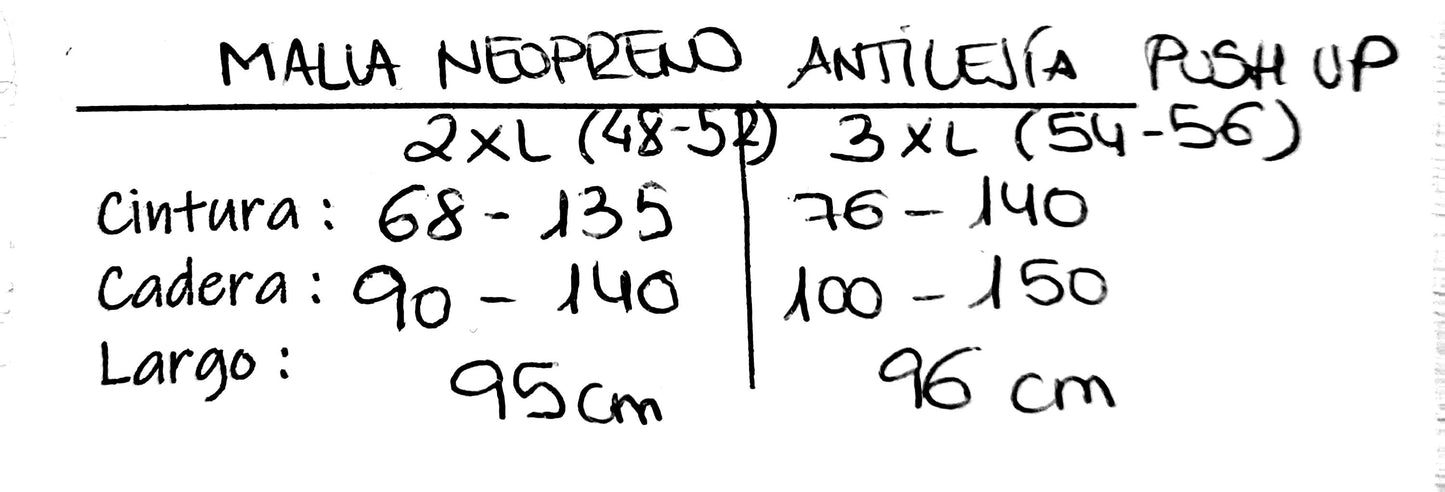 MALLA NEOPRENO ANTILEJÍA PUSH UP
2XL (48-52) 3XL (54-56)
Cintura: 68-135 76-140
Cadera: 90-140 100-150
Largo: 95cm 96 cm